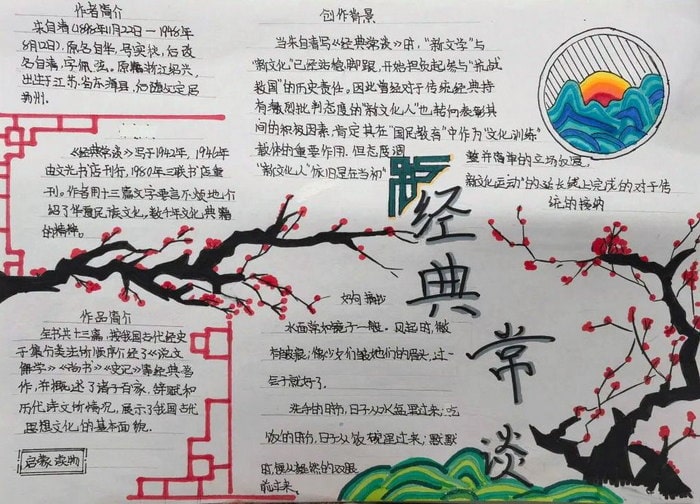 作者简介
朱自清(1898年11月22日—1948年
8月12日),原名自华,号实秋,后改
名自清,字佩弦。原籍浙江绍兴,
出生于江苏省东海县,后随父定居
扬州。
《经典常谈》写于1942年,1946年
由文光书店刊行,1980年三联书店重
刊。作者用十三篇文字要言不烦地介
绍了华夏民族文化,数千年文化典籍
的精神。
作品简介
全书共十三篇,按我国古代经史
子集分类法的顺序介绍了《说文
解字》《尚书》《史记》等经典著
作,并概述了诸子百家、辞赋和
历代诗文的情况,展示了我国古代
思想文化的基本面貌。
启蒙读物
创作背景
当朱自清写《经典常谈》时,“新文学”与
“新文化”已经站稳脚跟,开始担负起参与“抗战
救国”的历史责任。因此曾经对于传统经典持
有激烈批判态度的“新文化人”也转向表彰其
间的积极因素,肯定其在“国民教育”中作为“文化训练”
载体的重要作用,但态度调
整并简单的立场反复,
“新文化人”依旧是在当初“
新文化运动”的延长线上完成的对于传
统的接纳
经典常谈
好句摘抄
水面常如镜子一般。风起时,微
有皱痕;像少女们皱她们的眉头,过一
会子就好了。
洗手的时候,日子从水盆里过来;吃
饭的时候,日子从饭碗里过来;默默
时,便从凝然的双眼
前过来。